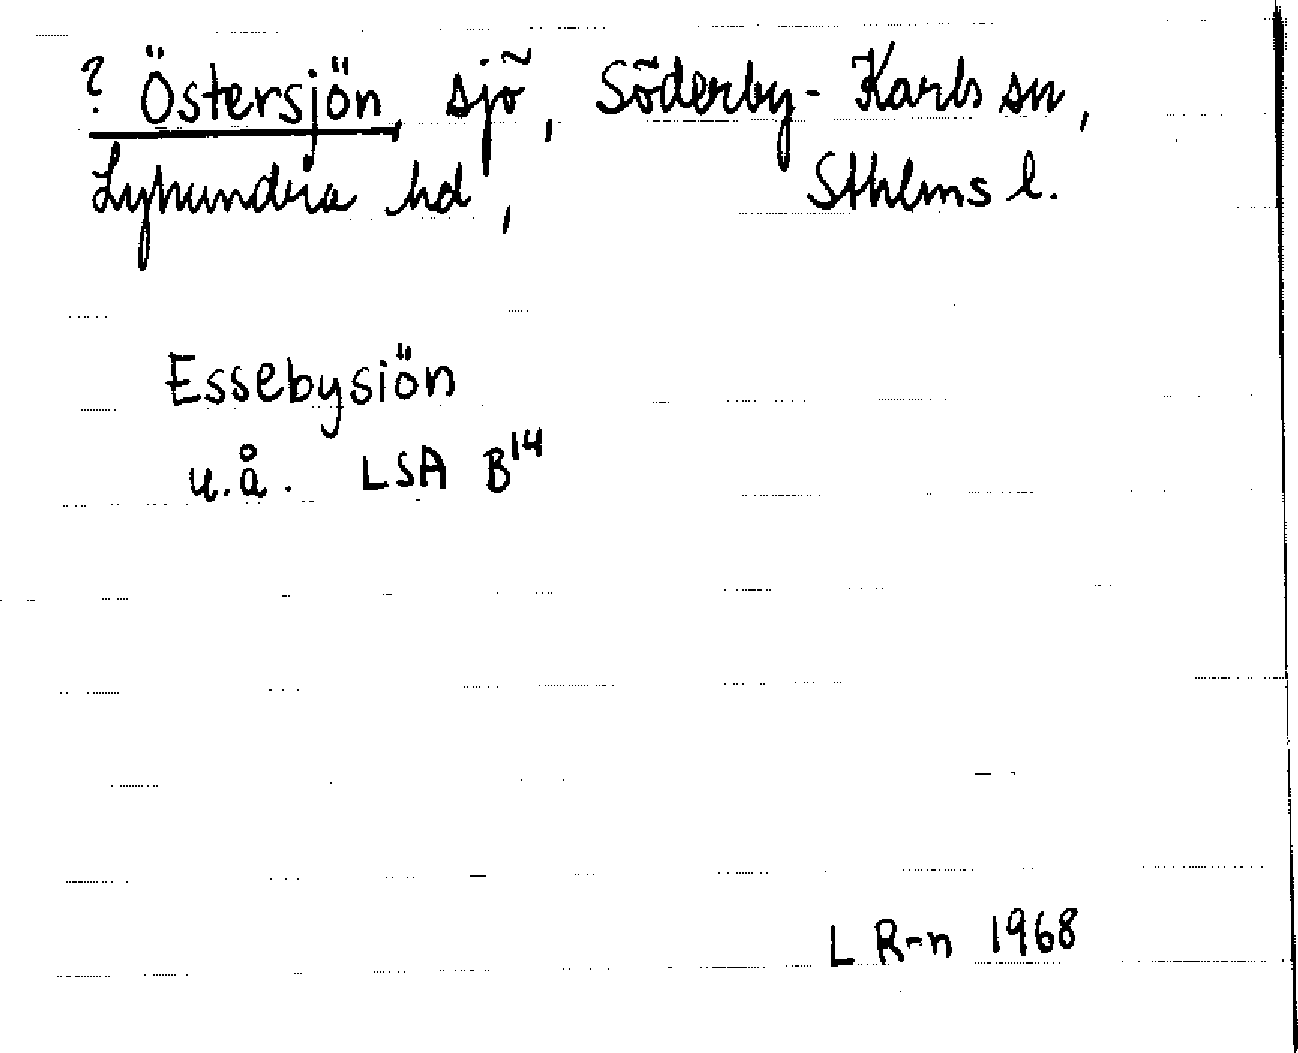 ? Östersjön, sjö, Söderby-Karls sn,
Lyhundra hd, Sthlms l.
Essebysiön
u.å. LSA B¹⁴
L R-n 1968